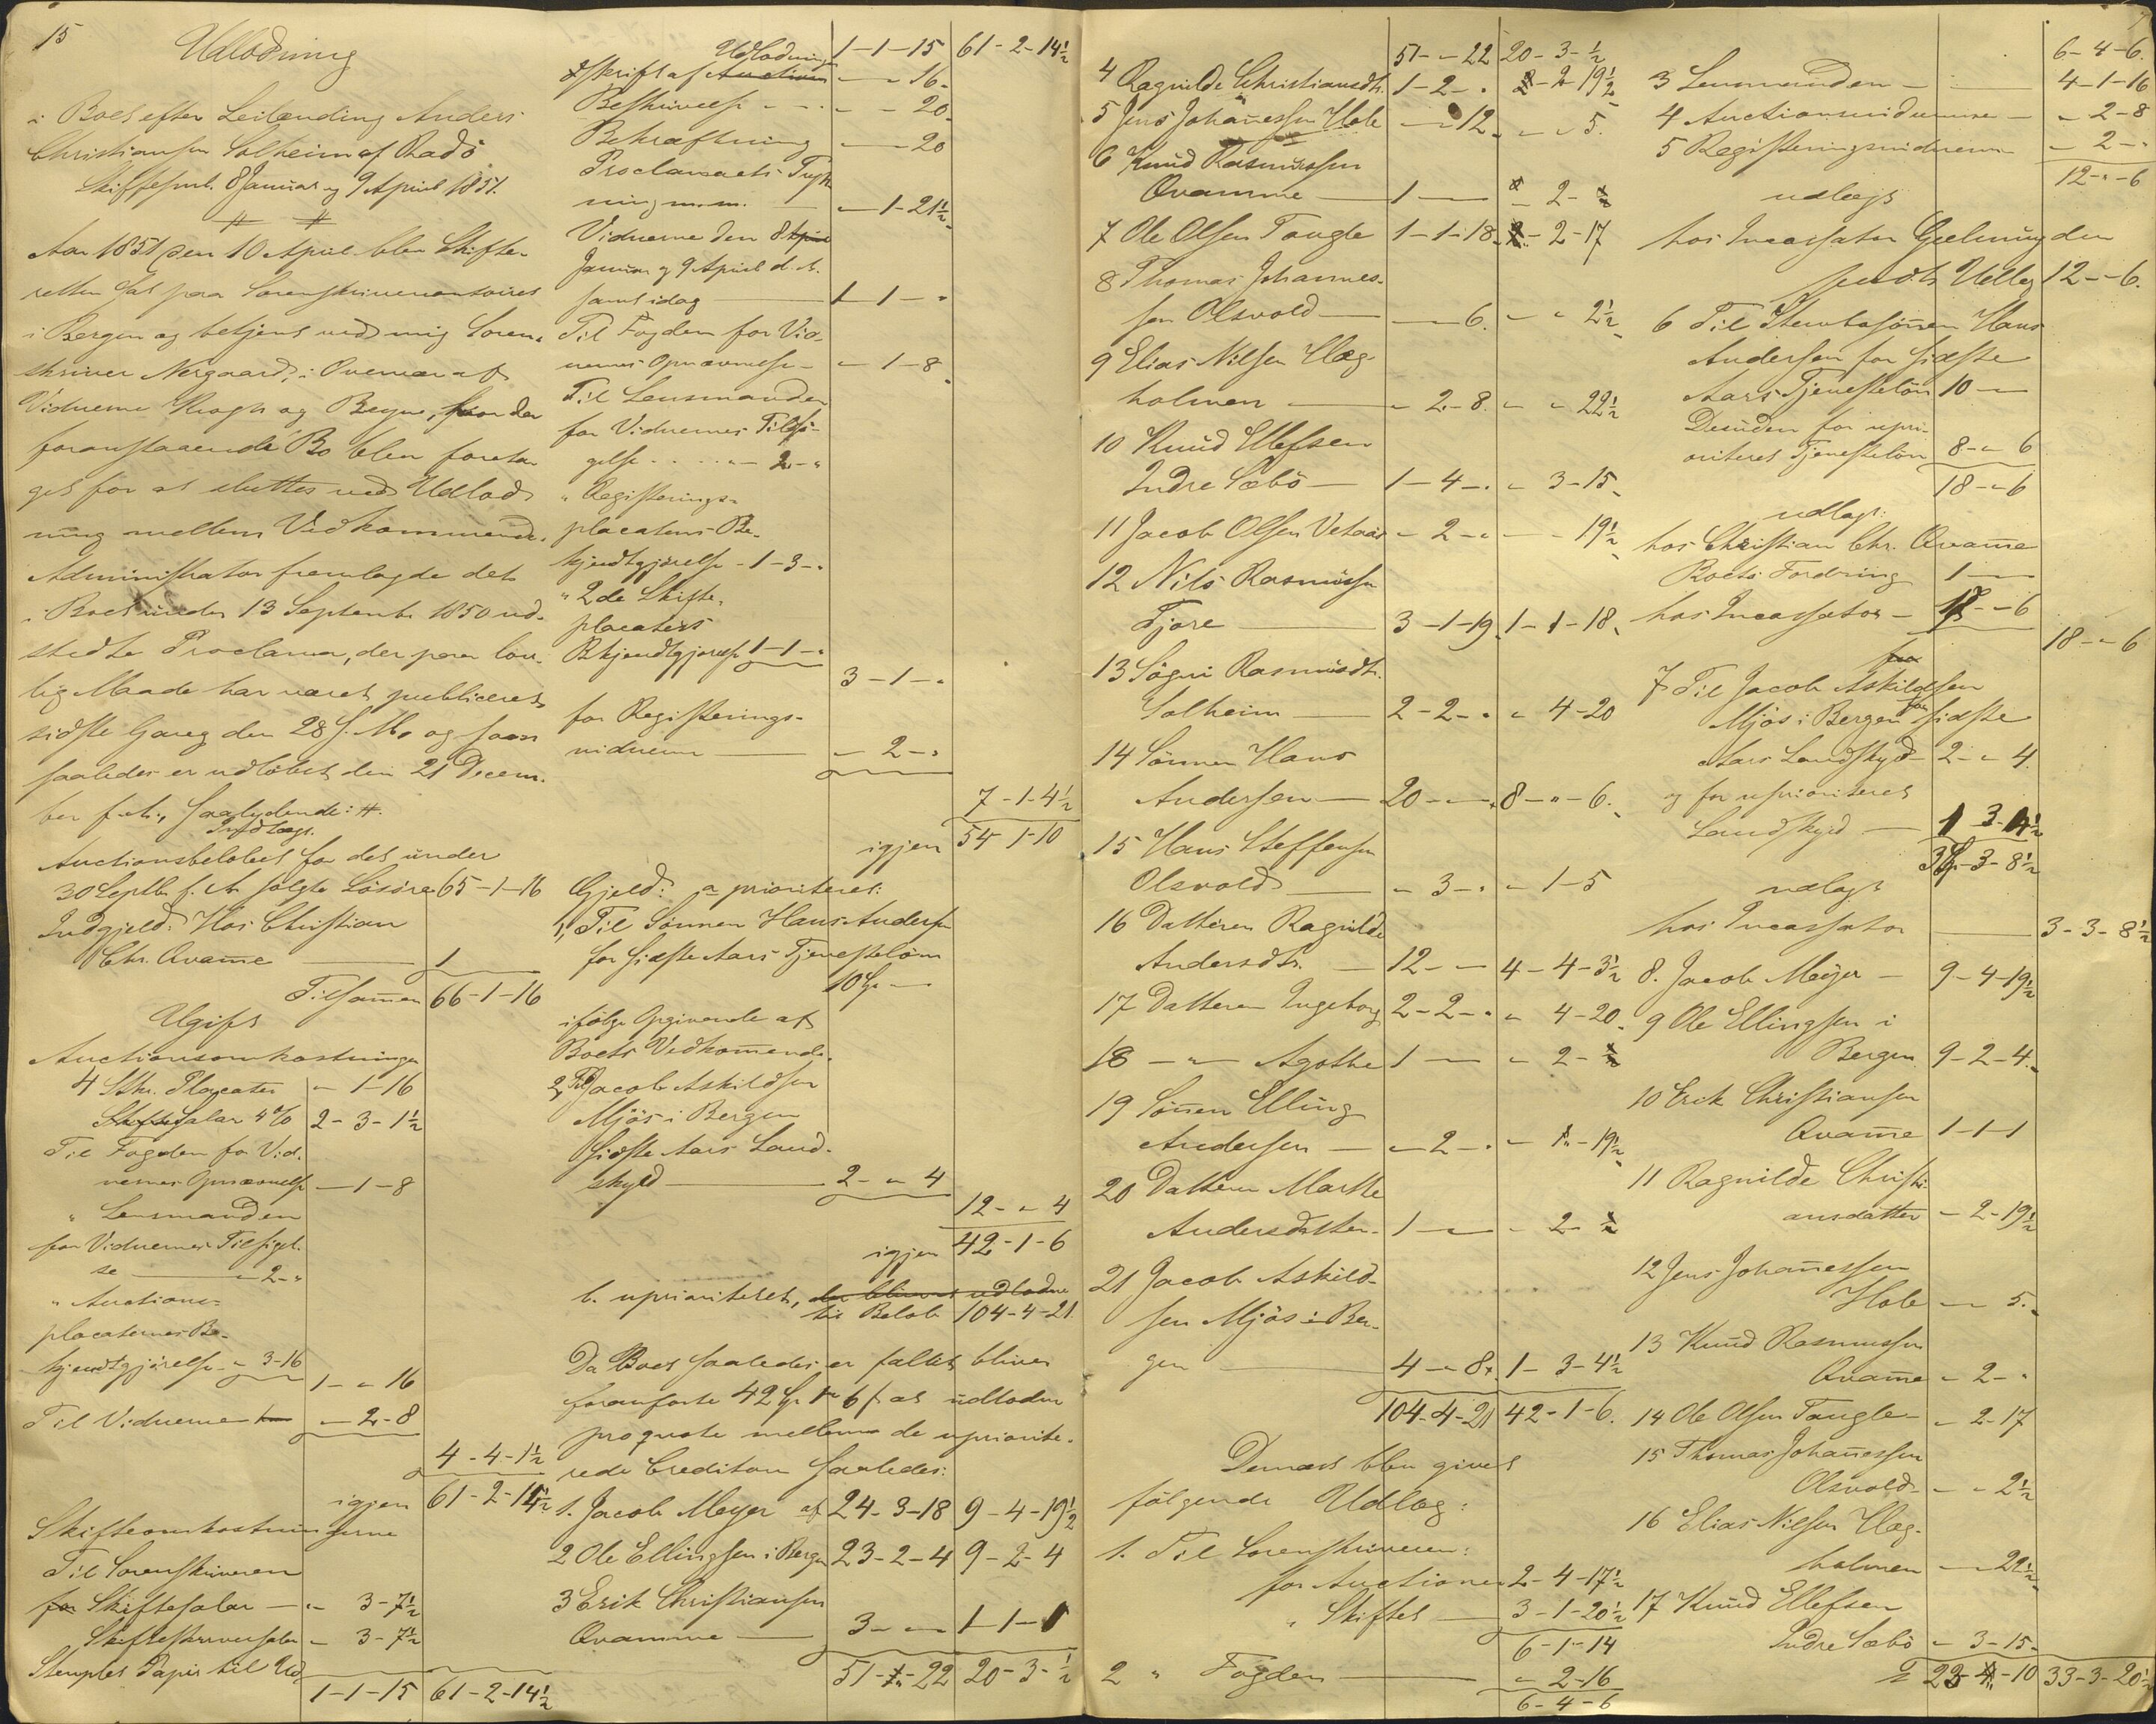 15
Udlodning
i Boet efter Leilænding Anders
Christiansen Solheim af Radö
Skiftesml. 8 Januar og 9 April 1851.
Aar 1851 den 10 April blev Skifte-
retten sat paa Sorenskrivercontoiret
i Bergen og betjent ved mig Soren-
skriver Nergaard, i Overvær af
Vidnerne Krogh og Beyer, hvor da
foranstaaende Bo blev foreta-
get for at sluttes ved Udlod-
ning mellem Vedkommende.
Administrator fremlagde det
i Boet under 13 Septembr 1850 ud-
stedte Proclama, der paa lov-
lig Maade har været publiceret
sidste Gang den 28 s. M. og som
saaledes er udlöbet den 21 Decem-
ber f. A., saalydende: #.
Indtægt.
Auctionsbelöbet for det under
30 Septbr f. A. solgte Lösöre 65-1-16
Indgjeld: Hos Christian
Chr. Qvamme 1
Tilsammen 66-1-16
Udgift
Auctionsomkostninger
4 Stkr. Placater - 1-16
Salar 4% 2-3-1½
Til Fogden for Vid-
nernes Opnævnelse - 1-8
" Lensmanden
for Vidnernes Tilsigel-
se - 2-"
" Auctions-
placaternes Be-
kjendtgjörelse - 3-16
1 - " 16
Til Vidnerne - 2-8
4-4-1½
igjen 61-2-14½
Skifteomkostningerne
Til Sorenskriveren
for Skiftesalar - " 3-7½
Skifteskriversalar - 3-7½
Stemplet Papir til Ud-
1-1-15 61-2-14½
Udlodningen 1-1-15 61-2-14½
Afskrift af Auctionen - " 16
Beskrivelse - - 20
Bekræftning - 20
Proclamaets Tryk-
ning m.m. - 1-21½
Vidnerne den 8 April
Januar og 9 April d. A.
samt idag 1-1-"
Til Fogden for Vid-
nernes Opnævnelse - 1-8
Til Lensmanden
for Vidnernes Tilsi-
gelse - 2-"
" Registerings-
placatens Be-
kjendtgjörelse - 1-3-"
" 2de Skifte-
placaters
Bekjendtgjörelse 1-1-"
3-1-"
for Registerings-
vidnerne - 2-"
7-1-4½
igjen 54-1-10
Gjeld: a prioriteret:
1, Til Sönnen Hans Andersen
for sidste Aars Tjenestelön
10 Sp -
ifölge Opgivende af
Boets Vedkommende.
2, Til Jacob Askildsen
Mjös i Bergen
sidste Aars Land-
skyld 2-"4
12-"4
igjen 42-1-6
b. uprioriteret, der bliver at udlodne
til Belöb 104-4-21
Da Boet saaledes er fallit bliver
foranförte 42 Sp 1 " 6 s at udlodne
pro qvota mellem de uprioite-
rede Creditorer saaledes:
1. Jacob Meyer af 24-3-18 9-4-19½
2 Ole Ellingsen i Bergen 23-2-4 9-2-4
3 Erik Christiansen
Qvamme 3-"- 1-1-1
51-"-22 20-3-½
51-"22 20-3-½
4 Ragnilde Christiansdtr. 1-2-" "-2-19½
5 Jens Johannessen Hole - " 12 - " 5.
6 Knud Rasmussen
Qvamme 1 - - 2-
7 Ole Olsen Tangle 1-1-18 - 2-17
8 Thomas Johannes-
sen Olsvold - 6. - " 2½
9 Elias Nilsen Hæg-
holmen - 2-8. - " 22½
10 Knud Ellefsen
Indre Sæbö 1-4-. " 3-15
11 Jacob Olsen Vetaas - 2-" - 19½
12 Nils Rasmussen
Fjære 3-1-19 1-1-18
13 Sögni Rasmusdtr.
Solheim 2-2-" " 4-20
14 Sönnen Hans
Andersen 20-"- 8-"-6.
15 Hans Steffensen
Olsvold - 3-" - 1-5
16 Datteren Ragnilde
Andersdtr. 12-- 4-4-3½
17 Datteren Ingeborg 2-2-" " 4-20
18 -"- Agathe 1- - 2-
19 Sönnen Elling
Andersen - 2-" - " 19½
20 Datteren Marthe
Andersdatter 1- - 2-
21 Jacob Askild-
sen Mjös i Ber-
gen 4-"8. 1-3-4½
104-4-21 42-1-6.
Dernæst blev givet
fölgende Udlæg:
1. Til Sorenskriveren:
for Auctionen 2-4-17½
" Skiftet 3-1-20½
6-1-14
2 " Fogden " 2-16
6-4-6
6-4-6.
3 Lensmanden 4-1-16
4 Auctionsvidnerne - " 2-8
5 Registeringsvidnerne - 2-"
12-"-6
udlagt
hos Incassator Gjelmuyden
Udlæg 12-"-6.
6 Til Stervbsönnen Hans
Andersen for sidste
Aars Tjenestelön 10-"
Desuden for upri-
oriteret Tjenestelön 8-"6
18-"6
udlagt
hos Christian Chr. Qvamme
Boets Fordring 1 -
hos Incassator - 17-"6
18-"6
7 Til Jacob Askildsen
Mjös i Bergen for sidste
Aars Landskyld 2-"4
og for uprioriteret
Landskyld 1 3-4½
3-3-8½
udlagt
hos Incassator 3-3-8½
8. Jacob Meyer - 9-4-19½
9 Ole Ellingsen i
Bergen 9-2-4.
10 Erik Christiansen
Qvamme 1-1-1
11 Ragnilde Christi-
ansdatter - 2-19½
12 Jens Johannessen
Hole - " 5.
13 Knud Rasmussen
Qvamme - 2-"
14 Ole Olsen Tangle - 2-17
15 Thomas Johannessen
Olsvold - " 2½
16 Elias Nilsen Hæg-
holmen - " 22½
17 Knud Ellefsen
Indre Sæbö - 3-15
23-"-10 33-3-20½